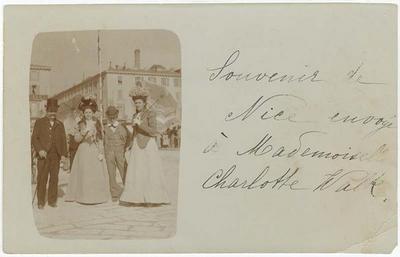 Souvenir de
Nice envoyé
à Mademoiselle
Charlotte Walk.